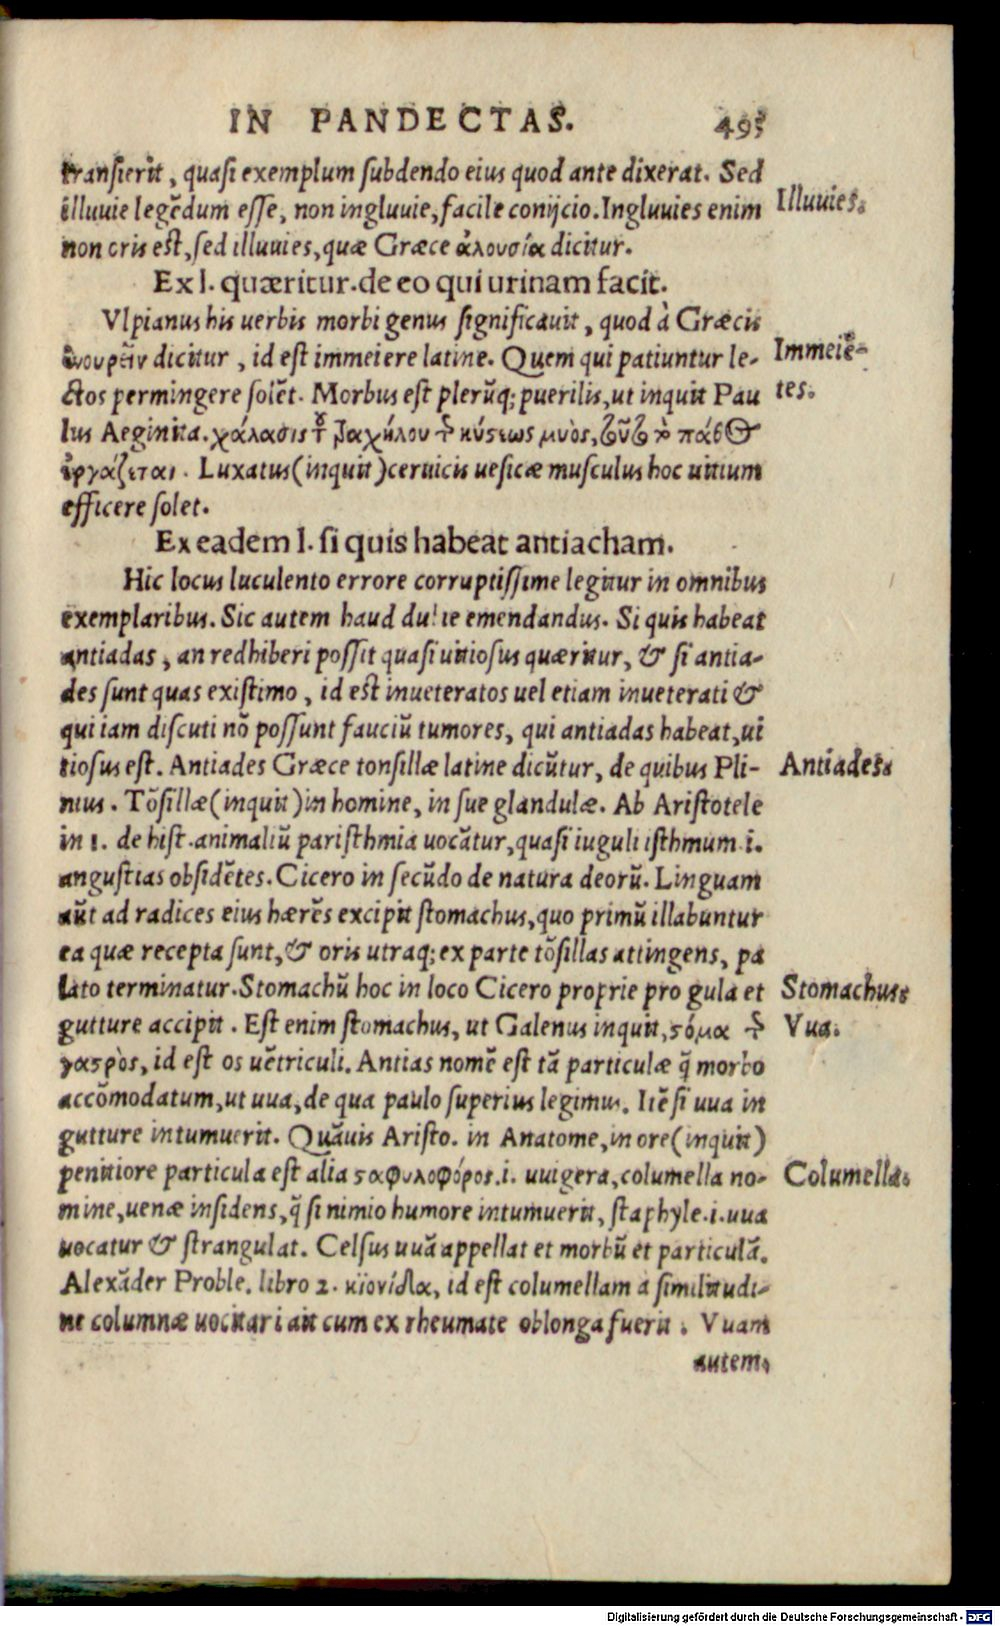 IN PANDECTAS. 495
transierit, quasi exemplum subdendo eius quod ante dixerat. Sed
illuuie legẽdum esse, non ingluuie, facile conijcio. Ingluuies enim
Illuuies.
non oris est, sed illuuies, quæ Græce ἀλουσία dicitur.
Ex l. quæritur. de eo qui urinam facit.
Vlpianus his uerbis morbi genus significauit, quod à Græcis
ἐνουρεῖν dicitur, id est immeiere latine. Quem qui patiuntur le-
Immeiẽ-
ctos permingere solẽt. Morbus est plerũq; puerilis, ut inquit Pau
tes.
lus Aeginita. χάλασις τοῦ τραχήλου τῆς κύστεως μυὸς, τοῦτο τὸ πάθος
ἐργάζεται. Luxatus (inquit) ceruicis uesicæ musculus hoc uitium
efficere solet.
Ex eadem l. si quis habeat antiacham.
Hic locus luculento errore corruptissime legitur in omnibus
exemplaribus. Sic autem haud dubie emendandus. Si quis habeat
antiadas, an redhiberi possit quasi uitiosus quæritur, & si antia-
des sunt quas existimo, id est inueteratos uel etiam inueterati &
qui iam discuti nõ possunt fauciũ tumores, qui antiadas habeat, ui
tiosus est. Antiades Græce tonsillæ latine dicũtur, de quibus Pli-
Antiades.
nius. Tõsillæ (inquit) in homine, in sue glandulæ. Ab Aristotele
in 1. de hist. animaliũ paristhmia uocãtur, quasi iuguli isthmum .i.
angustias obsidẽtes. Cicero in secũdo de natura deorũ. Linguam
aũt ad radices eius hærẽs excipit stomachus, quo primũ illabuntur
ea quæ recepta sunt, & oris utraq; ex parte tõsillas attingens, pa
lato terminatur. Stomachũ hoc in loco Cicero proprie pro gula et
Stomachus.
gutture accipit. Est enim stomachus, ut Galenus inquit, ϛόμα τῆς
Vua.
γαϛρὸς, id est os uẽtriculi. Antias nomẽ est tã particulæ q̃ morbo
accõmodatum, ut uua, de qua paulo superius legimus. Itẽ si uua in
gutture intumuerit. Quãuis Aristo. in Anatome, in ore (inquit)
penitiore particula est alia ϛαφυλοφόρος .i. uuigera, columella no-
Columella.
mine, uenæ insidens, q̃ si nimio humore intumuerit, staphyle .i. uua
uocatur & strangulat. Celsus uuã appellat et morbũ et particulã.
Alexãder Proble. libro 2. κϊονίδα, id est columellam à similitudi-
ne columnæ uocitari ait cum ex rheumate oblonga fuerit. Vuam
autem,
Digitalisierung gefördert durch die Deutsche Forschungsgemeinschaft - DFG